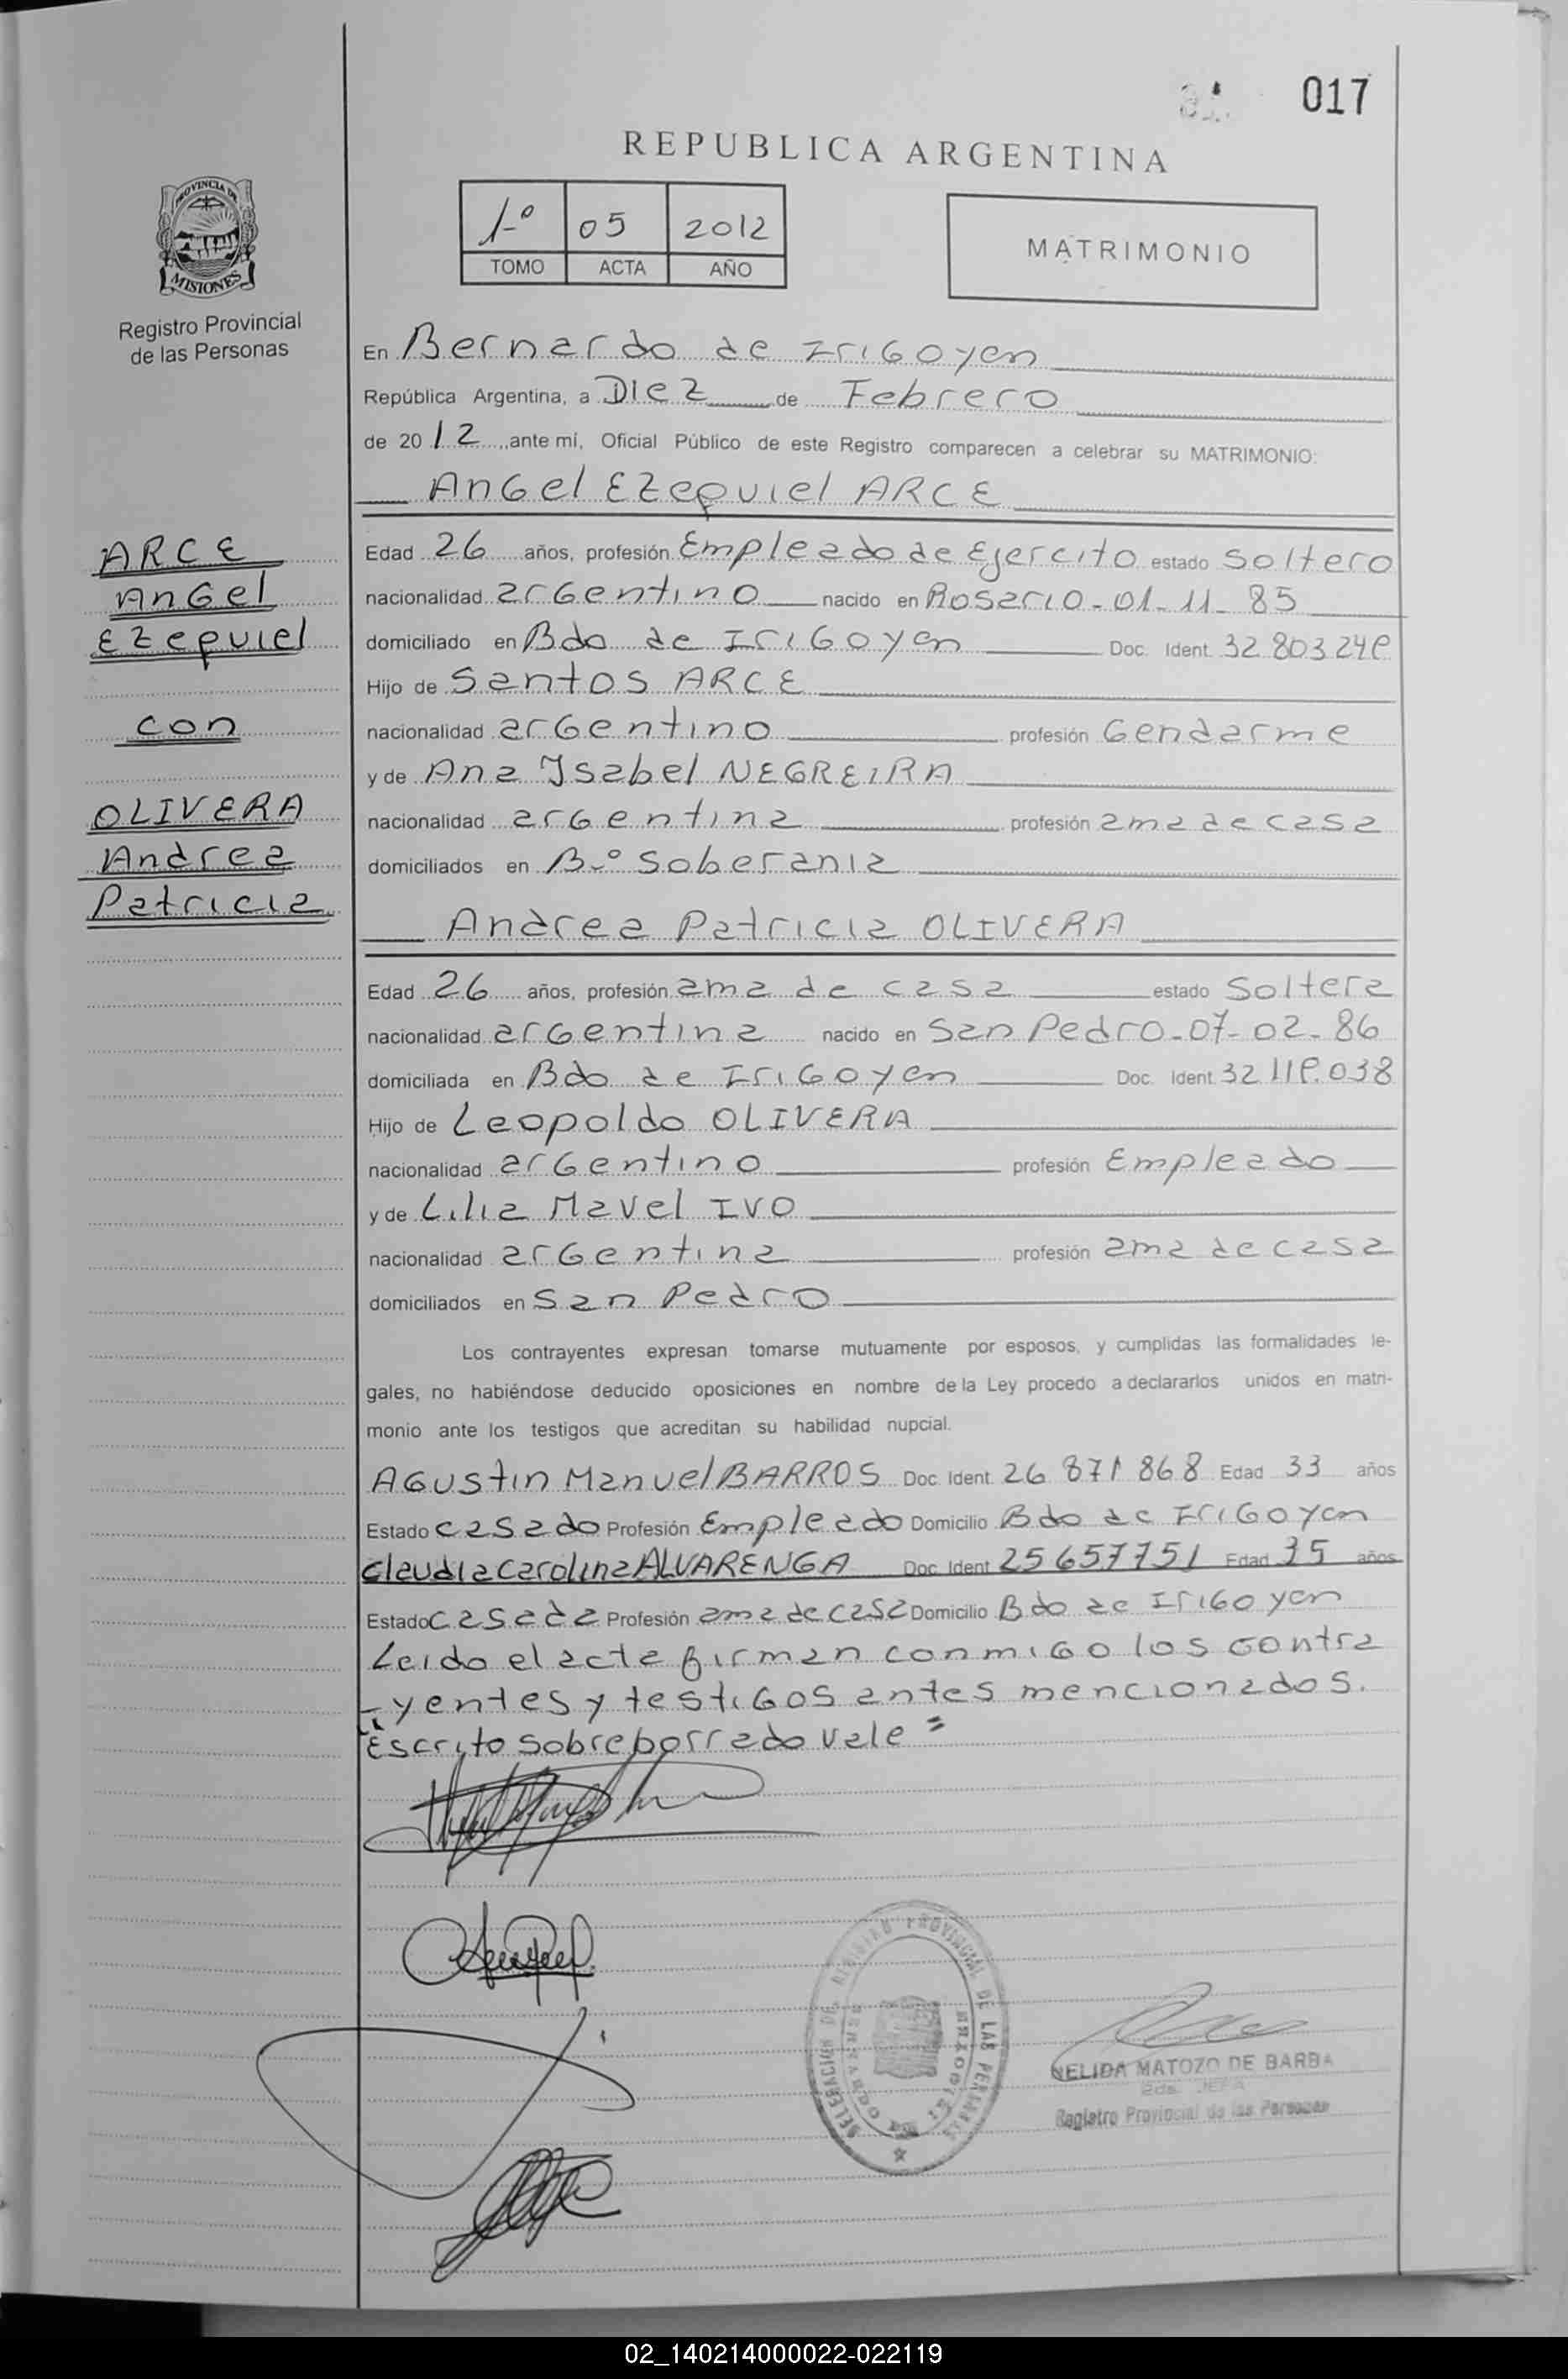 017
REPUBLICA ARGENTINA
1º 05 2012
TOMO ACTA AÑO
MATRIMONIO
PROVINCIA DE
MISIONES
Registro Provincial
de las Personas
En Bernardo de IriGoyen
República Argentina, a Diez de Febrero
de 2012, ante mí, Oficial Público de este Registro comparecen a celebrar su MATRIMONIO:
AnGel EZequiel ARCE
ARCE
AnGel
EZequiel
con
OLIVERA
Andrea
Patricia
Edad 26 años, profesión Empleado de Ejercito estado soltero
nacionalidad arGentino nacido en Rosario-01-11-85
domiciliado en Bdo de IriGoyen Doc. Ident.
Hijo de Santos ARCE
nacionalidad arGentino profesión Gendarme
y de Ana Ysabel NEGREIRA
nacionalidad arGentina profesión ama de casa
domiciliados en Bº Soberania
Andrea Patricia OLIVERA
Edad 26 años, profesión ama de casa estado Soltera
nacionalidad arGentina nacido en San Pedro-07-02-86
domiciliada en Bdo de IriGoyen Doc. Ident.
Hijo de Leopoldo OLIVERA
nacionalidad arGentino profesión Empleado
y de Lilia Mavel IVO
nacionalidad arGentina profesión ama de casa
domiciliados en San Pedro
Los contrayentes expresan tomarse mutuamente por esposos, y cumplidas las formalidades le-
gales, no habiéndose deducido oposiciones en nombre de la Ley procedo a declararlos unidos en matri-
monio ante los testigos que acreditan su habilidad nupcial.
AGustin Manuel BARROS Doc. Ident. 26 871 868 Edad 33 años
Estado casado Profesión Empleado Domicilio Bdo de IriGoyen
Claudia Carolina ALVARENGA Doc. Ident. 25 657 751 Edad 35 años
Estado casada Profesión ama de casa Domicilio Bdo de IriGoyen
Leido el acta firman conmiGo los contra
-yentes y testiGos antes mencionados.
"Escrito sobreborrado vale"
DELEGACION DEL REGISTRO PROVINCIAL DE LAS PERSONAS
BERNARDO DE IRIGOYEN
NELIDA MATOZO DE BARBA
2da. JEFA
Registro Provincial de las Personas
02_140214000022-022119